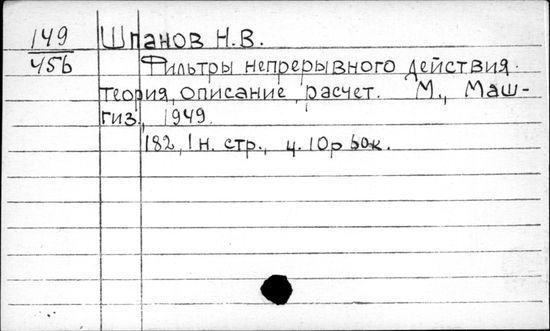 149 Шпанов Н.В.
456 Фильтры непрерывного действия.
Теория, описание, расчет. М., Маш-
гиз, 1949.
182, 1 н. стр., ц. 10р 60к.